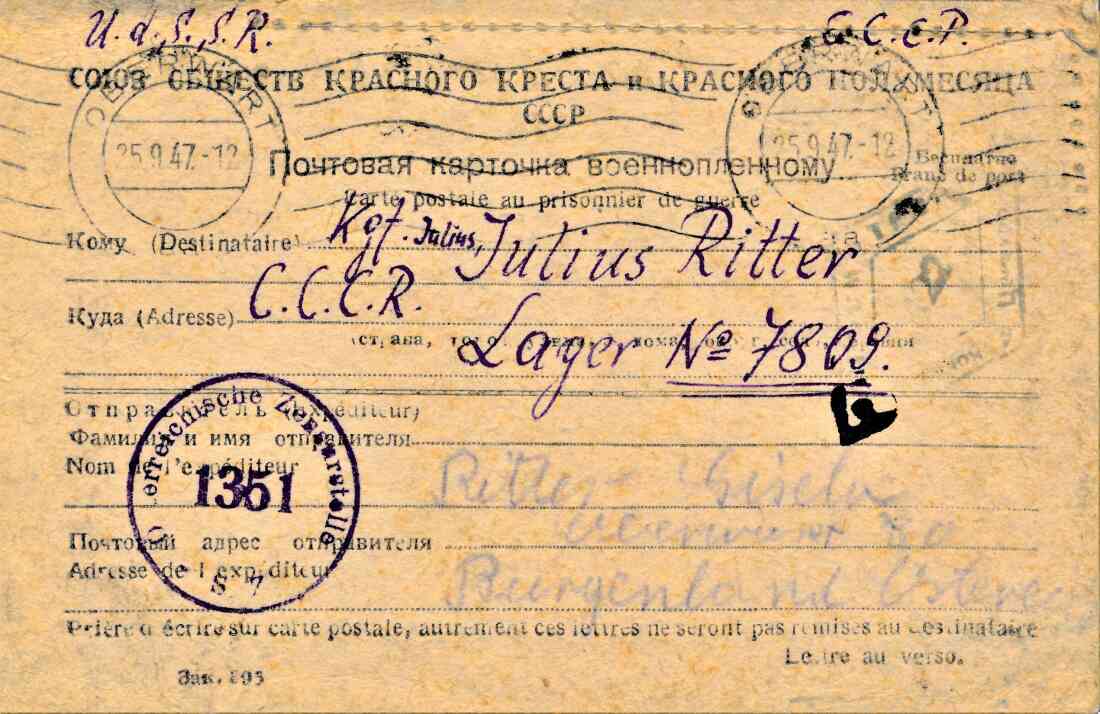 U.d.S.S.R. C.C.C.P.
СОЮЗ ОБЩЕСТВ КРАСНОГО КРЕСТА и КРАСНОГО ПОЛУМЕСЯЦА
СССР
OBERWART
25.9.47.-12
OBERWART
25.9.47.-12
Почтовая карточка военнопленному
Бесплатно
Carte postale au prisonnier de guerre
Franc de port
Кому (Destinataire) Kgf. Julius, Julius Ritter
Куда (Adresse) C.C.C.R.
Lager № 7809.
Отправитель (Expéditeur)
Фамилия и имя отправителя
Nom de l'expéditeur
Ritter Gisela
Österreichische Zensurstelle
1351
S 7
Почтовый адрес отправителя
Oberwart 80
Adresse de l'expéditeur
Burgenland Östre
Prière d'écrire sur carte postale, autrement ces lettres ne seront pas remises au destinataire
Lettre au verso.
Зак. 195